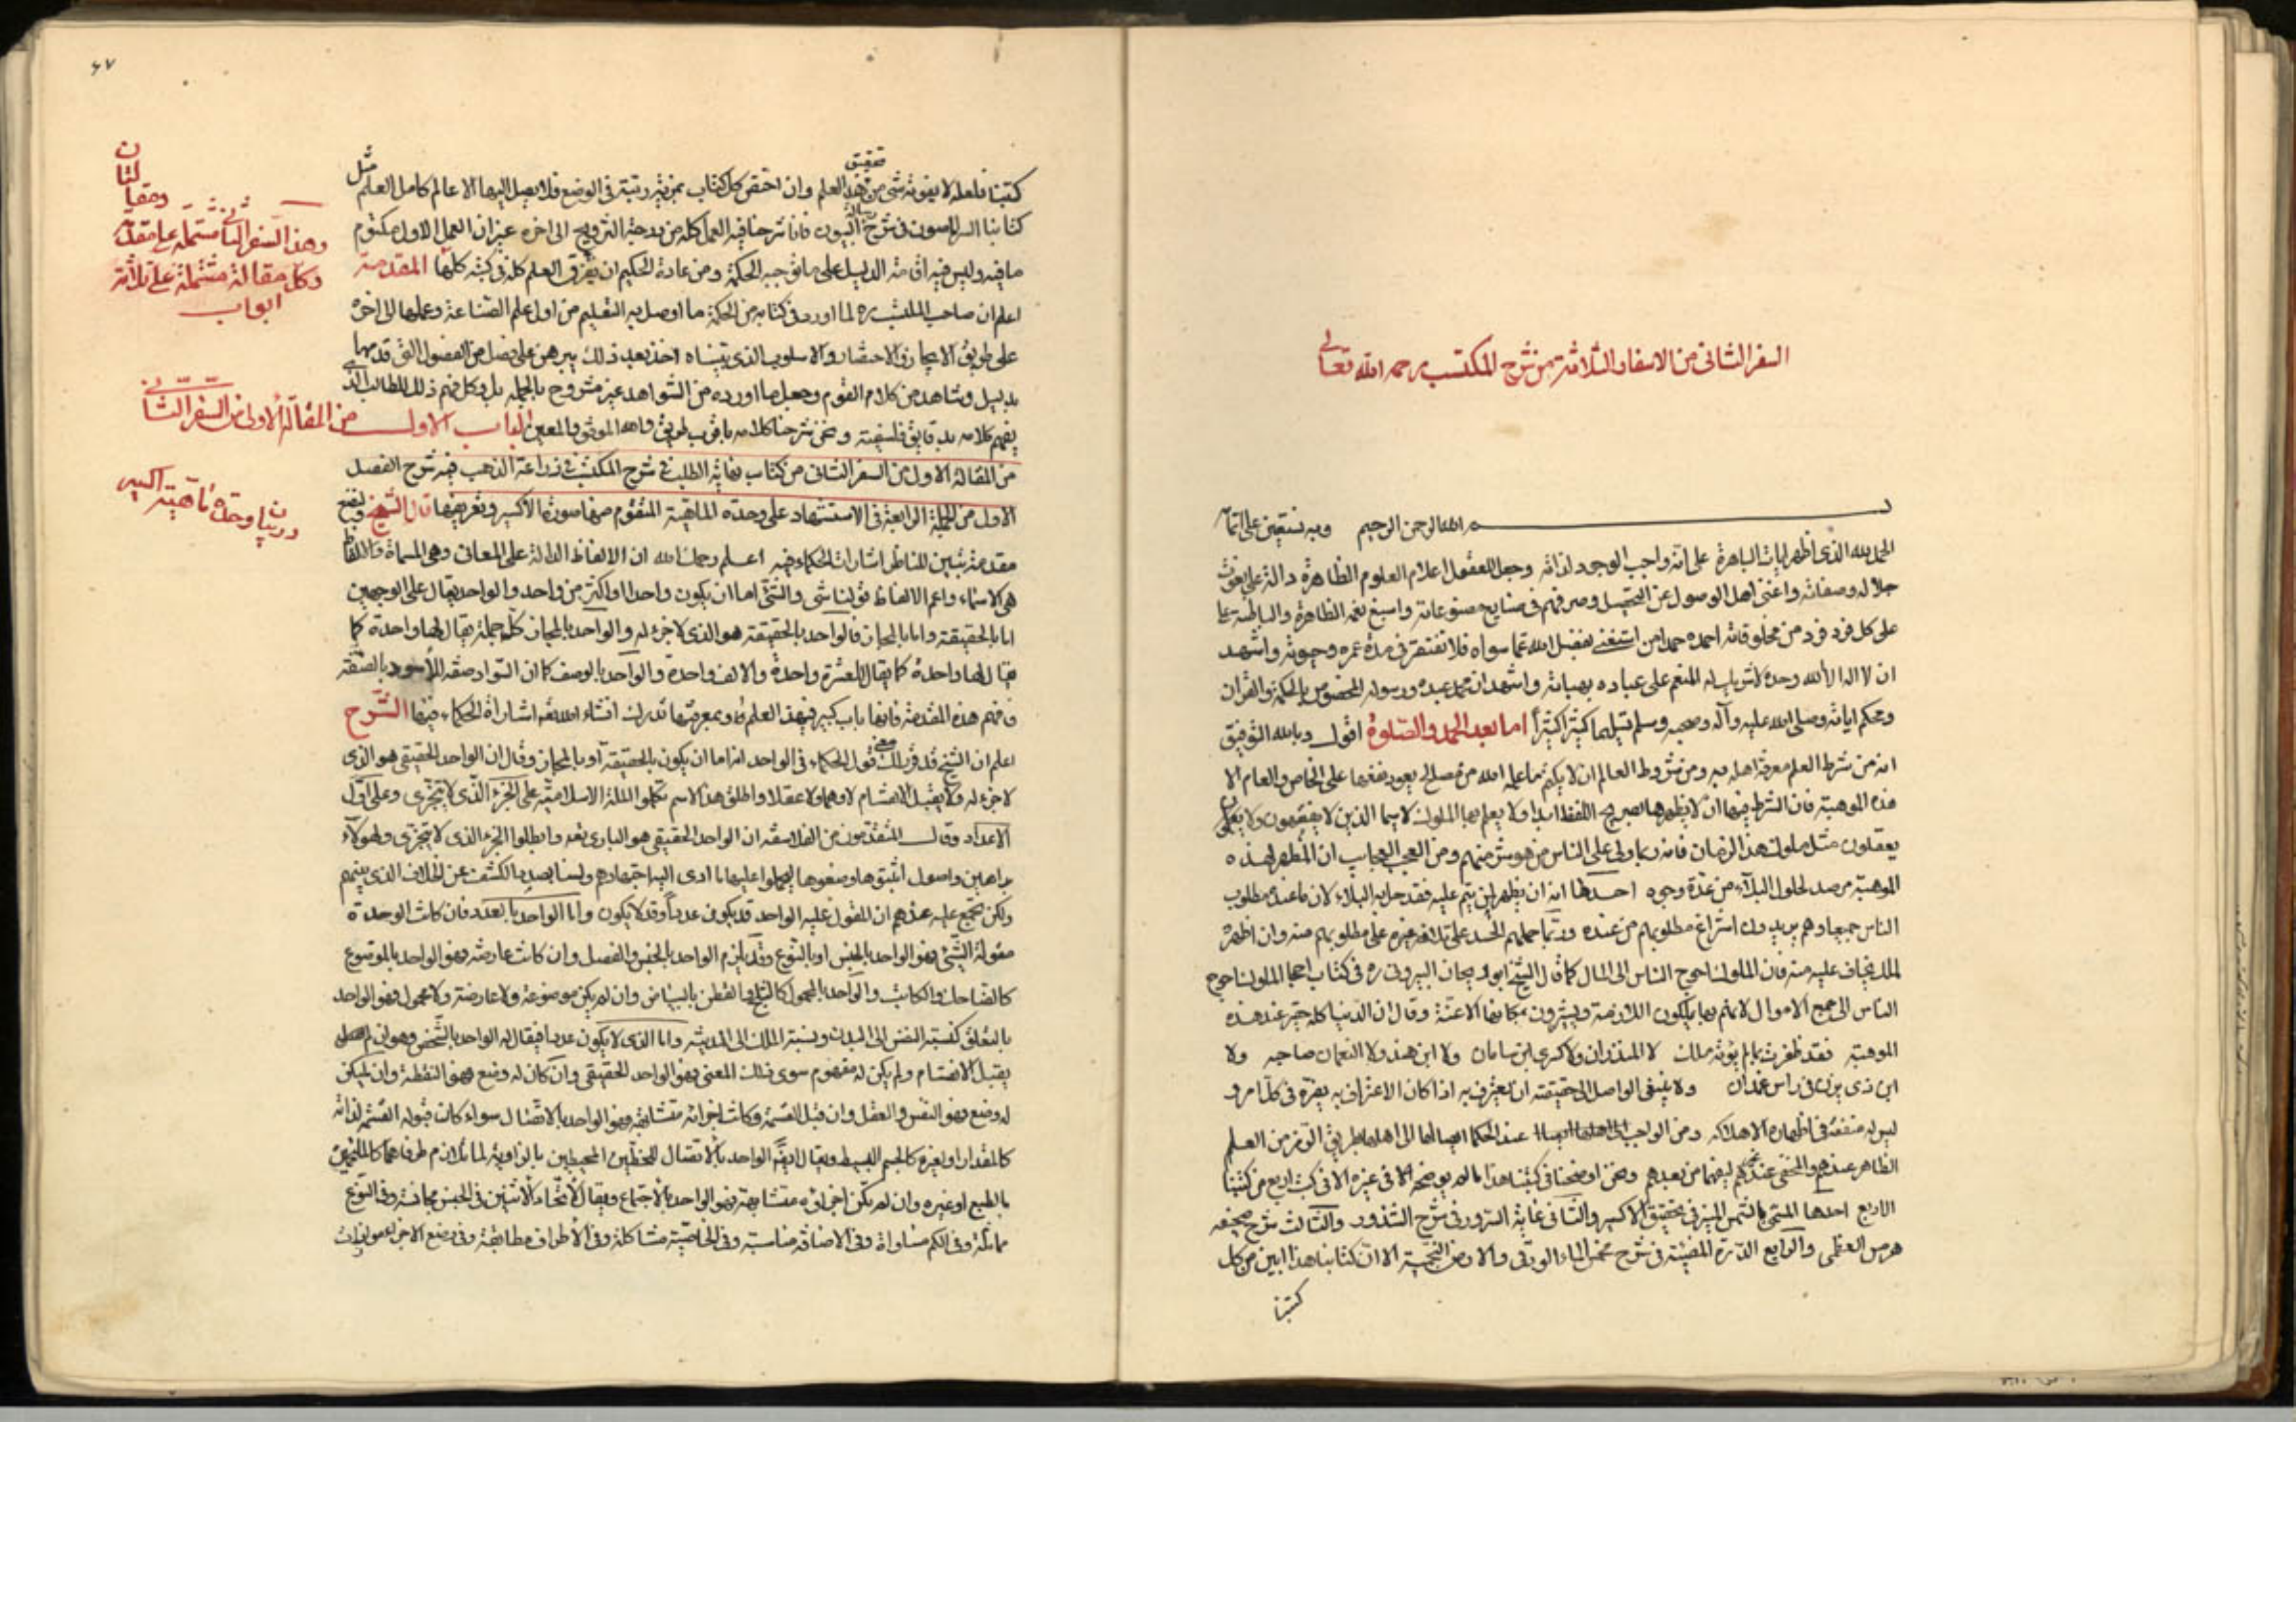 السفر الثانى من الاسفار الثلاثة من شرح المكتسب رحمه الله تعالى
بسم الله الرحمن الرحيم وبه نستعين على اتمامه
الحمد لله الذى اظهر ايات الباهرة على انه واجب الوجود لذاته وجعل للعقول اعلام العلوم الظاهرة دالة على نعوت
جلاله وصفاته واغنى اهل الوصول عن التحصيل وصرفهم فى منايح مصنوعاته واسبغ نعمه الظاهرة والباطنة
على كل فرد فرد من مخلوقاته احمده حمدا من استغنى بفضل الله عما سواه فلا تفتقر فى مدة عمره وحيوته واشهد
ان لا اله الا الله وحده لا شريك له المنعم على عباده بهباته واشهد ان محمد عبده ورسوله المخصوص بالحكمة والقران
ومحكم اياته وصلى الله عليه وآله وصحبه وسلم تسليما كثيرا كثيرا اما بعد الحمد والصلوة اقول وبالله التوفيق
انه من شرط العلم معرفة اهله به ومن شروط العالم ان لا يكتم ما علمه الله من مصالح يعود نفعها على الخاص والعام الا
هذه الموهبة فان الشرط فيها ان لا يظهرها بصريح اللفظ ابدا ولا يعلم بها الملوك لا سيما الذين لا يفقهون ولا
يعقلون مثل ملوك هذا الزمان فانه ربما ولى على الناس من هو شر منهم ومن العجب العجاب ان المظهر لهذه
الموهبة مرصد لحلول البلاء من عدة وجوه احدها انه ان يظهر لمن ينم عليه فقد حل به البلاء لان ما عنده مطلوب
الناس جميعا وهم يريدون انتزاع مطلوبهم من عنده وربما حملهم الحسد على تلافه غيره على مطلوبهم منه وان اظهره
لملك يخاف عليه منه فان الملوك احوج الناس الى المال كما قال الشيخ ابو ريحان البيرونى ره فى كتاب احجار الملوك احوج
الناس الى جمع الاموال لانهم بها يملكون الازمة ويشترون بمكانها الاعنة وقال ان الدنيا كلها حقيرة عند هذه
الموهبة فقد ظفرت بما لم يؤته ملك لا المنذران ولا كسرى ابن ساسان ولا ابن هند ولا النعمان صاحبه ولا
ابن ذى يزن فى راس غمدان ولا ينبغى الواصل الى حقيقته ان يعترف به اذا كان الاعتراف به يضره فى كل امر و
ليس له منفعة فى اظهاره الا هلاكه ومن الواجب عند الحكما ايصالها الى اهلها بطريق الرمز من العلم
الظاهر عندهم والمخفى عند غيركم ليفهما من بعدهم ونحن اوضحنا فى كتبنا هذا ما لم يوضحه الا فى غيره الا فى كتب اربع من كتبنا
الاربع احدها المسمى بالشمس المنير فى تحقيق الاكسير والثانى غاية السرور فى شرح الشذور والثالث شرح صحيفه
هرمس العظمى والرابع الدرة المضيئة فى شرح مخمس الماء الورقى والارض النجمية الا ان كتابنا هذا ابين من كل
كتبنا
٤٧
كتبنا فلعله لا يفوته شى من هذا العلم وان اختص كل كتاب بمزية رتبة فى الوضع فلا يصل اليها الا عالم كامل العلم مثل
كتابنا السر المصون فى شرح رسالة البيون فاننا شرحنا فيه العمل كله من درجة التزويج الى اخره غير ان العمل الاول مكتوم
ما فيه وليس فيه اقامة الدليل على ما توجبه الحكمة ومن عادة الحكيم ان يفرق العلم كله فى كتبه كلها المقدمة
اعلم ان صاحب المكتسب ره لما اورد فى كتابه من الحكمة ما اوصل به التعليم من اول علم الصناعة وعملها الى اخره
على طريق الايجاز والاختصار والاسلوب الذى بيناه اخذ بعد ذلك يبرهن على فصل من الفصول التى قدمها
بدليل وشاهد من كلام القوم وجعل ما اورده من الشواهد غير مشروح بالجملة بل وكل فهم ذلك للطالب الذى
يفهم كلامه بدقايق فلسفية ونحن نشرحنا كلامه باقرب طريق والله الموفق والمعين الباب الاول من المقالة الاولى من السفر الثانى
من المقالة الاول من السفر الثانى من كتاب نهاية الطلب فى شرح المكتسب فى زراعة الذهب فيه شرح الفصل
الاول من الجملة الرابعة فى الاستشهاد على وحدة الماهية المتقوم منها صورة الاكسير وتعريفها قال الشيخ
مقدمة تبين للناظر اشارات الحكماء فيه اعلم رحمك الله ان الالفاظ الدالة على المعانى وهى المسماة والالفاظ
هى الاسماء واعم الالفاظ قولنا شى والشئ اما ان يكون واحدا او اكثر من واحد والواحد يقال على الوجهين
اما بالحقيقة واما بالمجاز فالواحد بالحقيقة هو الذى لا جزء له والواحد بالمجاز كل جملة يقال لها واحدة كما
يقال لها واحدة كما يقال للعشرة واحدة والالف واحدة والواحد بالوصف كما ان السواد صفة للاسود بالصفة
فافهم هذه المقدمة فانها باب كبير فى هذا العلم وبمعرفتها تدرك انشاء الله تعه اشاراة الحكماء فيها الشرح
اعلم ان الشيخ قد قرر لك معنى قول الحكماء فى الواحد انه اما ان يكون بالحقيقة او بالمجاز وقال ان الواحد الحقيقى هو الذى
لا جزء له ولا يقبل الانقسام لا وهما ولا عقلا واطلق هذا الاسم متكلموا الملة الاسلامية على الجزء الذى لا يتجزى وعلى اول
الاعداد وقال المتقدمون من الفلاسفه ان الواحد الحقيقى هو البارى تعه وابطلوا الجزء الذى لا يتجزى ولهولآء
براهين واصول اثبتوها وصنعوها ليحملوا عليها ما ادى اليه اجتهادهم ولسنا بصدد الكشف عن الخلاف الذى بينهم
ولكن يجتمع عليه عندهم ان المقول عليه الواحد قد يكون عددا وقد لا يكون واما الواحد بالعدد فان كانت الوحدة
مقولة الشئ فهو الواحد بالجنس او بالنوع وقد يلزم الواحد بالجنس والفصل وان كانت عارضة فهو الواحد بالموضوع
كالضاحك والكاتب والواحد بالمحمول كالثلج والقطن بالبياض وان لم يكن موضوعة ولا عارضة ولا محمول فهو الواحد
بالتعلق كنسبة النفس الى البدن ونسبة الملك الى المدينة واما الذى لا يكون عددا فيقال له الواحد بالشخص وهو ان لم
يقبل الانقسام ولم يكن له مفهوم سوى ذلك المعنى فهو الواحد الحقيقى وان كان له وضع فهو النقطة وان لم يكن
له وضع فهو النفس والعقل وان قبل القسمة وكانت اجزائه متشابهة فهو الواحد بالاتصال سواء كانت قبوله القسمة لذاته
كالمقدار او لغيره كالجسم البسيط ويقال ايضا الواحد بالاتصال للخطين المحيطين بالزاوية لما تلازم طرفاهما كالملتحمين
بالطبع او غيره وان لم يكن اجزاؤه متشابهة فهو الواحد بالاجتماع ويقال لاتحاد الاثنين فى الجنس مجانسة وفى النوع
مماثلة وفى الكم مساواة وفى الاضافة مناسبة وفى الخاصية مشاكلة وفى الاطراف مطابقة وفى وضع الاجزاء موازات
وهذا السفر الثانى مشتملة على مقدمة ومقالتان
وكل مقالة مشتملة على ثلاثة
ابواب
در بيان وحدة ماهية اكسير